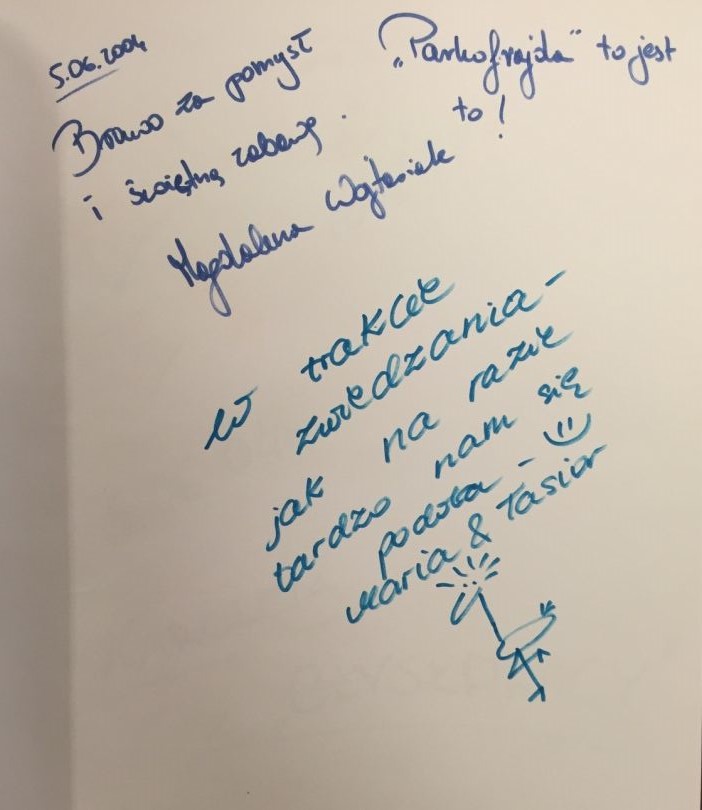 5.06.2004
Brawo za pomysł „Parkofrajda" to jest
i świetną zabawę. to!
Magdalena Wojtasiak
W trakcie
zwiedzania -
jak na razie
bardzo nam się
podoba -
Maria & Tasior